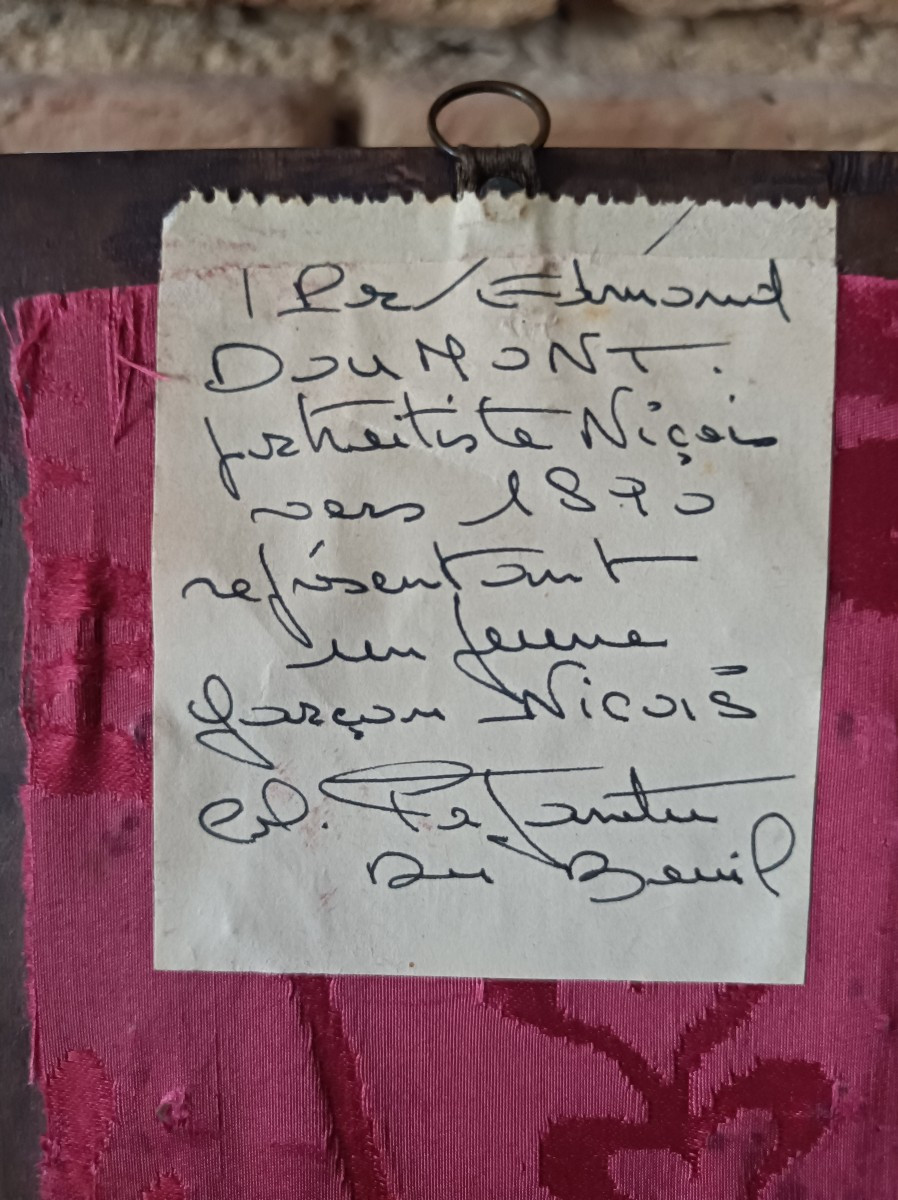 Edmond
DOUMONT.
portraitiste Niçois
vers 1870
représentant
un jeune
garçon Niçois
col.
Du Beuil